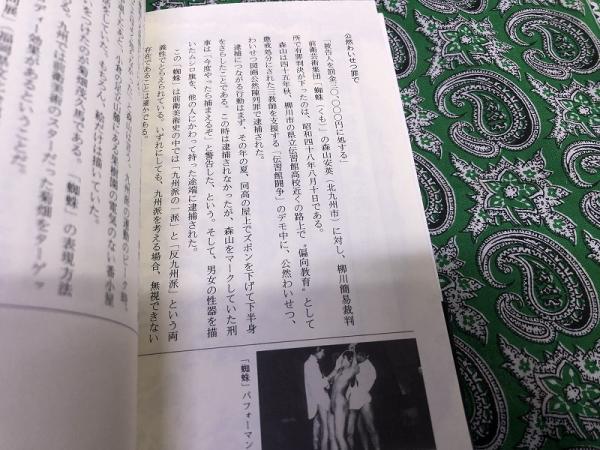 公然わいせつ罪で
「被告人を罰金三〇、〇〇〇円に処する」
前衛芸術集団「蜘蛛（くも）」の森山安英（北九州市）に対し、柳川簡易裁判
所で有罪判決が下ったのは、昭和四十八年八月十日である。
森山は四十五年秋、柳川市の県立伝習館高校近くの路上で〝偏向教育〟として
懲戒処分にされた三教師を支援する「伝習館闘争」のデモ中に、公然わいせつ、
わいせつ図画公然陳列罪で逮捕された。
逮捕につながる行動はまず、その年の夏、同高の屋上でズボンを下げて下半身
をさらしたことである。この時は逮捕されなかったが、森山をマークしていた刑
事は「今度やったら捕まえるぞ」と警告した、という。そして、男女の性器を描
いたムシロ旗を、他の人にかわって持った途端に逮捕された。
この「蜘蛛」は前衛美術史の中では「九州派の一派」と「反九州派」という両
義性でとらえられている。いずれにしても、九州派を考える場合、無視できない
存在であることは確かである。
のピーク時、
小倉の足立山麓にある果樹園の電気のない番小屋
絵を描いていた。
「蜘蛛」の表現方法
った菊畑をターゲッ
ディー効果
「蜘蛛」パフォーマン